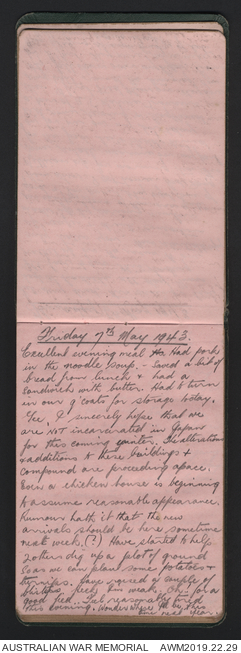 Friday 7th May 1943.
Excellent evening meal Had pork
in the noodle soup. - Saved a bit of
bread from lunch & had a
sandwich with butter. Had to turn
in our g'coats for storage today.
Gee, I sincerely hope that we
are NOT incarcerated in Japan
for this coming winter. The alterations
& additions to these buildings &
compound are proceeding apace.
Even a chicken house is beginning
to assume reasonable appearance.
Rumour hath it that the new
arrivals should be here sometime
next week. (?) Have started to help
2 others dig up a plot of ground
so as we can plant some potatoes &
turnips. Have a couple of
this week. Oh, for a
good feed. Feel reasonably tired
this evening. Wonder where I'll be this
time next year.
AUSTRALIAN WAR MEMORIAL AWM2019.22.29